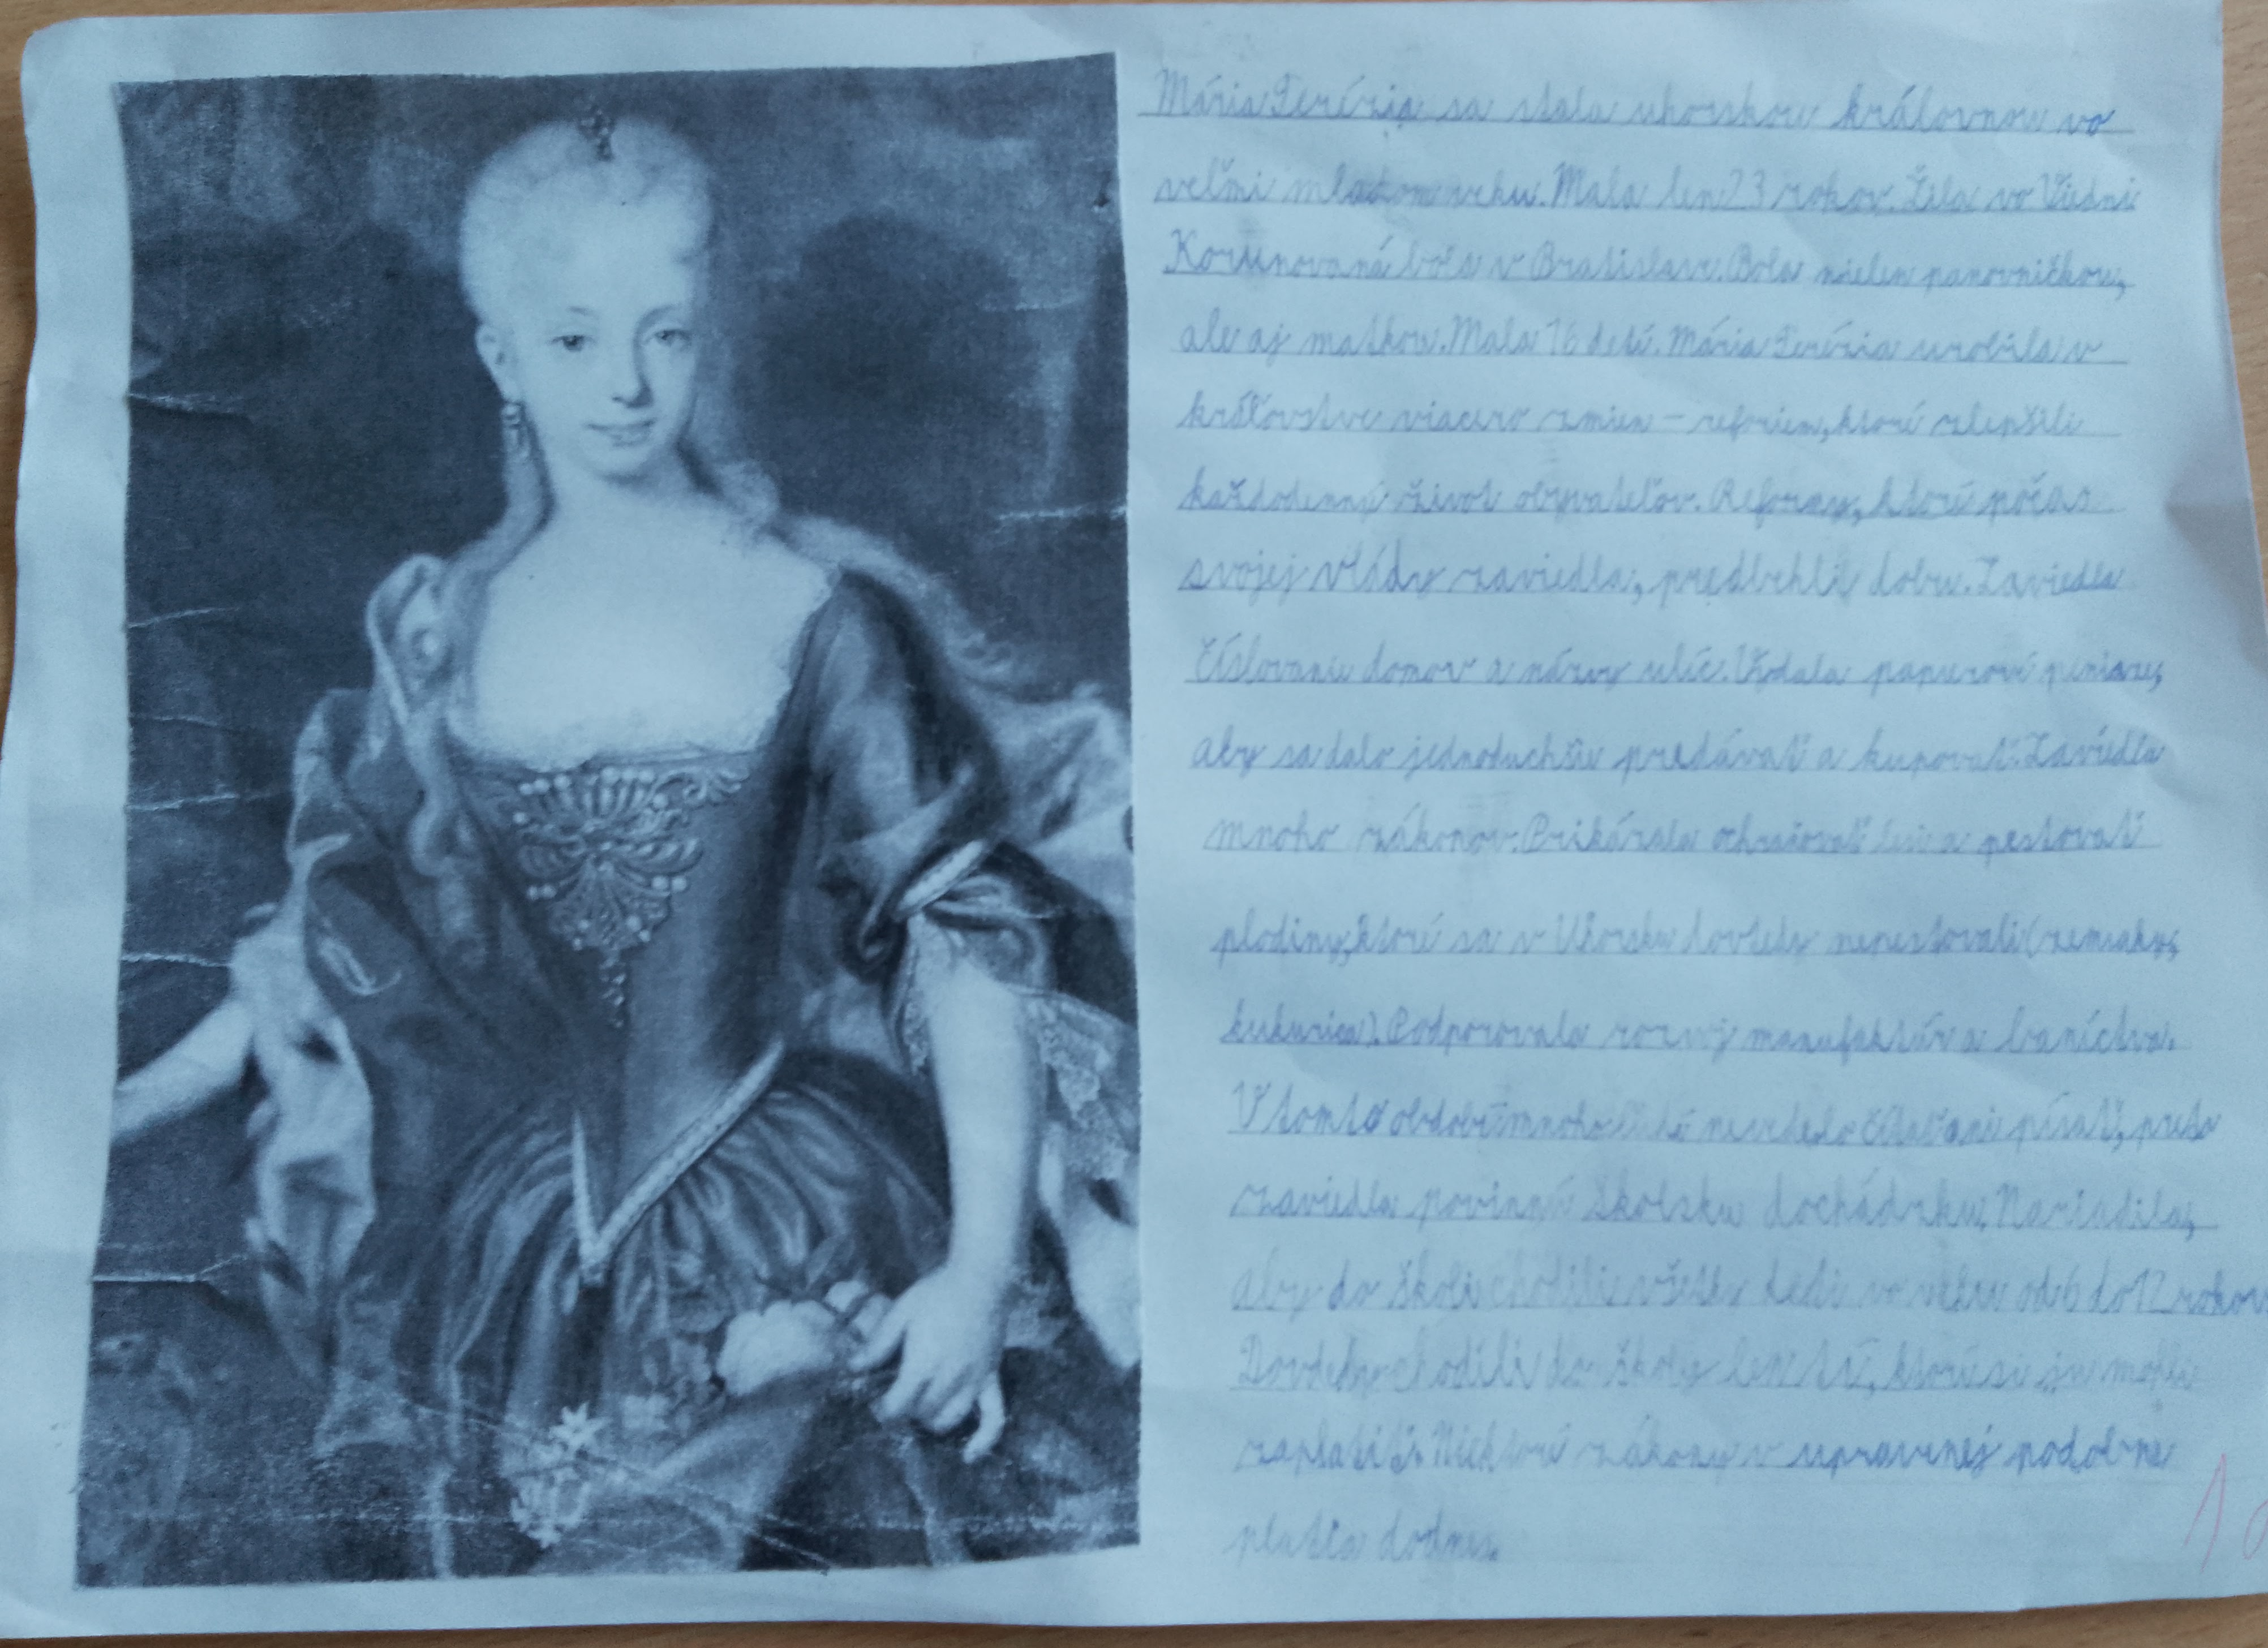 Mária Terézia sa stala uhorskou kráľovnou vo
veľmi mladom veku. Mala len 23 rokov. Žila vo Viedni
Korunovaná bola v Bratislave. Bola nielen panovníčkou,
ale aj matkou. Mala 16 detí. Mária Terézia urobila v
kráľovstve viacero zmien - reforiem, ktoré zlepšili
každodenný život obyvateľov. Reformy, ktoré počas
svojej vlády zaviedla, predbehli dobu. Zaviedla
číslovanie domov a názvy ulíc. Vydala papierové peniaze,
aby sa dalo jednoduchšie predávať a kupovať. Zaviedla
mnoho zákonov. Prikázala ochraňovať lesi a pestovať
plodiny, ktoré sa v Uhorsku dovtedy nepestovali (zemiaky,
kukurica). Podporovala rozvoj manufaktúr a baníctva.
V tomto období mnoho ľudí nevedelo čítať ani písať, preto
zaviedla povinnú školsku dochádzku. Nariadila,
aby do školi chodili všetky deti vo veku od 6 do 12 rokov
Dovtedy chodili do školy len tí, ktorí si ju mohli
zaplatiť. Niektoré zákony v upravenej podobne
platia dodnes.